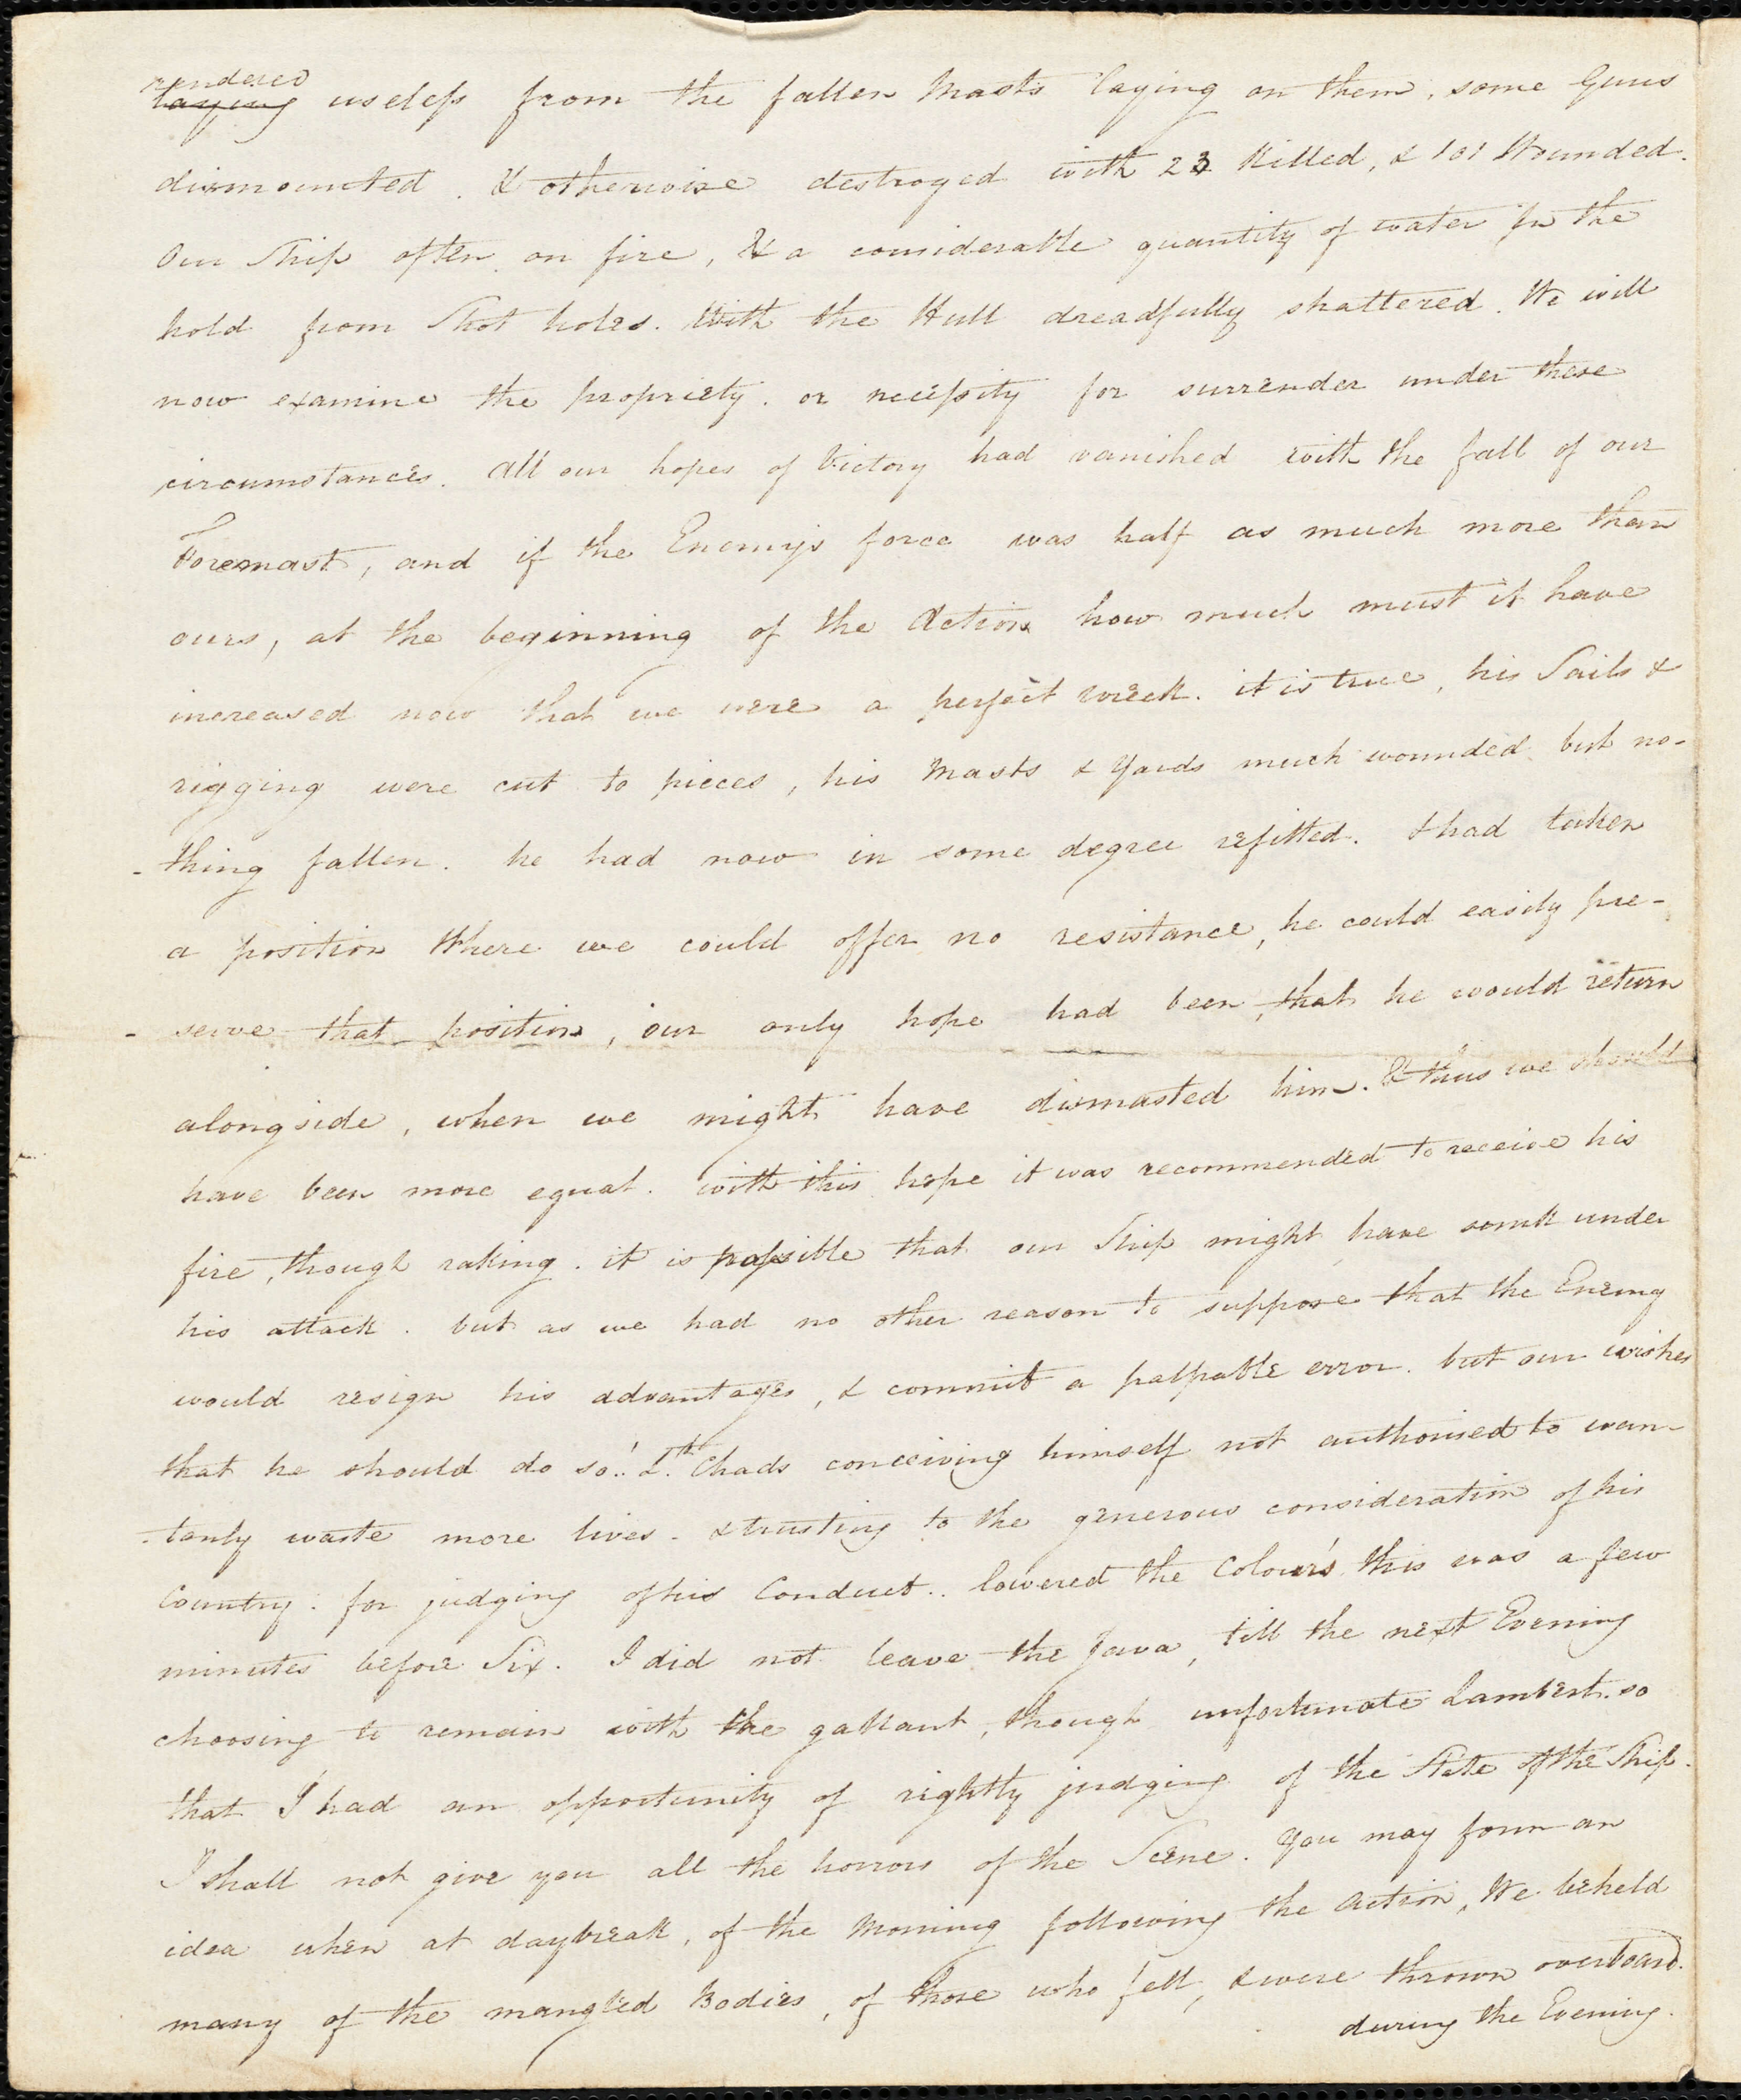 rendered
laying useless from the fallen Masts laying on them, some Guns
dismounted. & otherwise destroyed with 23 Killed, & 101 Wounded.
Our Ship often on fire, & a considerable quantity of water in the
hold from Shot holes. With the Hull dreadfully shattered. We will
now examine the propriety. or necessity for surrender under these
circumstances. All our hopes of Victory had vanished with the fall of our
Foremast, and if the Enemy's force was half as much more than
ours, at the beginning of the Action how much must it have
increased now that we were a perfect wreck. it is true, his Sails &
rigging were cut to pieces, his Masts & Yards much wounded but no-
-thing fallen. he had now in some degree refitted. & had taken
a position where we could offer no resistance, he could easily pre-
-serve that position, our only hope had been, that he would return
alongside, when we might have dismasted him. & thus we should
have been more equal. with this hope it was recommended to receive his
fire, though raking. it is possible that our Ship might have sunk under
his attack. but as we had no other reason to suppose that the Enemy
would resign his advantages, & commit a palpable error. but our wishes
that he should do so! Lt. Chads conceiving himself not authorised to wan-
-tonly waste more lives - & trusting to the generous consideration of his
Country. for judging of his Conduct.. lowered the Colours this was a few
minutes before Six. I did not leave the Java, till the next Evening
choosing to remain with the gallant, though unfortunate Lambert. so
that I had an opportunity of rightly judging of the State of the Ship.
I shall not give you all the horrors of the Scene. You may form an
idea when at daybreak, of the Morning following the Action, We beheld
many of the mangled Bodies, of those who fell, & were thrown overboard.
during the Evening.